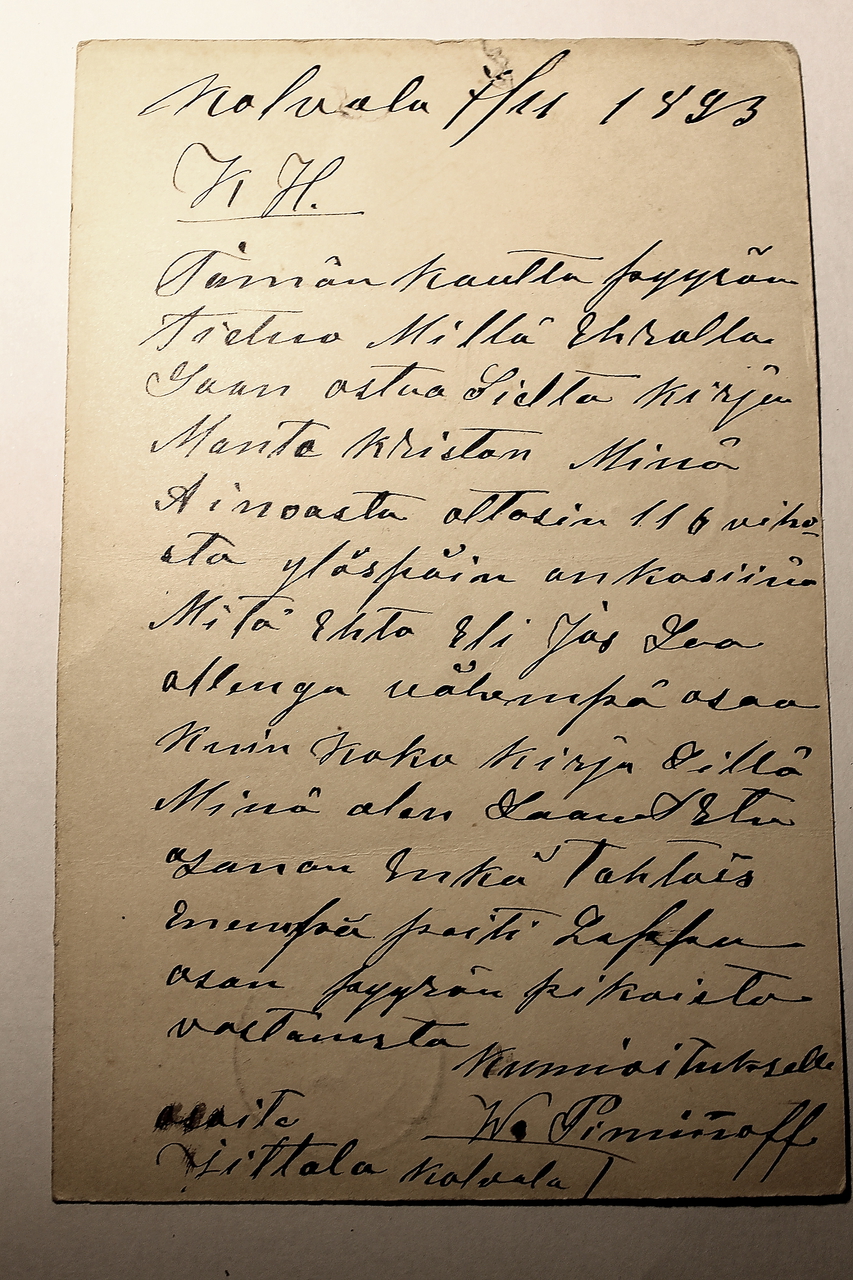 Kolvala 7/11 1893
K H.
Tämän kautta pyyrän
Tietuo Millä Ehrolla
Saan ostaa Sieltä Kirjan
Mante Kriston Minä
Ainoasta ottasin 116 viho-
sta ylöspäin ankasiina
Mitä Ehto Eli Jos Saa
ollenga vähempä osaa
Kuin koko kirja Sillä
Minä olen Saanu Etu
osanan Enkä Tahtois
Enempää paiti Loppu
osan pyyrän pikaista
vastausta
Kunnioituksella
osoite W. Piminoff
Iittala Kolvala